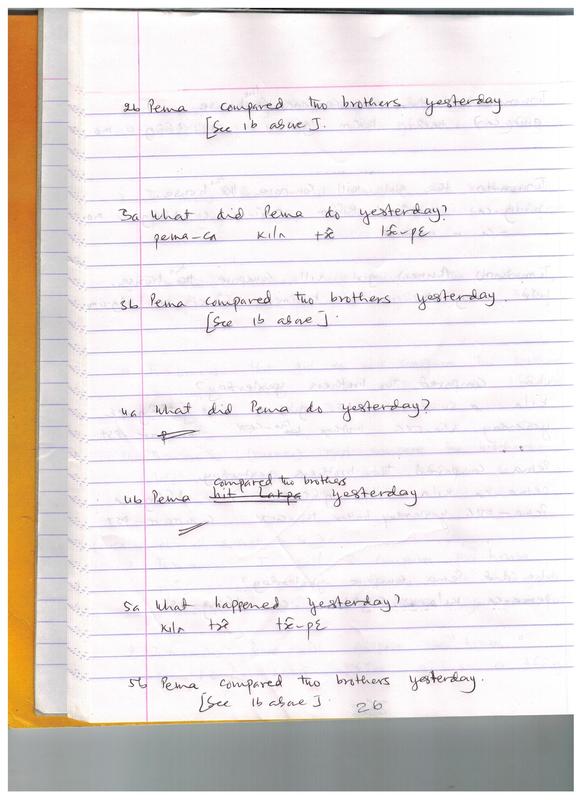 2b Pema compared two brothers yesterday
[See 1b above].
3a What did Pema do yesterday?
pema-ca kiln
3b Pema compared two brothers yesterday.
[See 1b above].
4a What did Pema do yesterday?
compared two brothers
4b Pema hit Lakpa yesterday
5a What happened yesterday?
kiln
5b Pema compared two brothers yesterday.
[See 1b above].
26